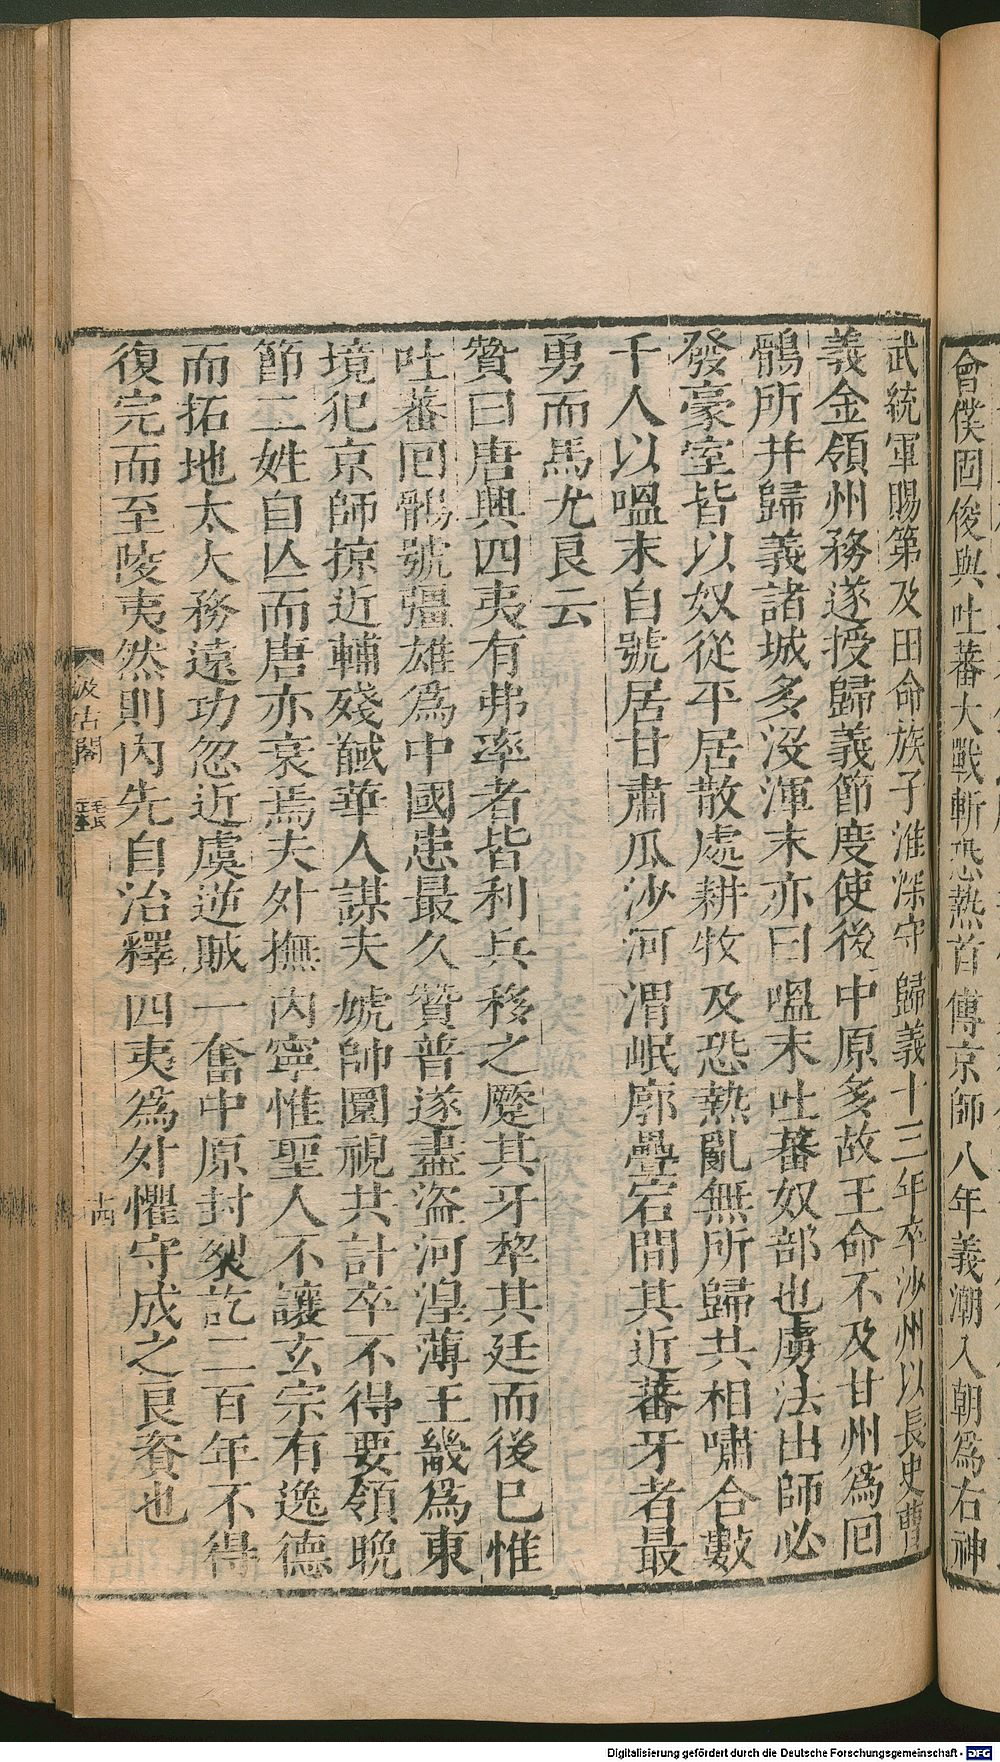 會僕固俊與吐蕃大戰斬恐熱首傳京師八年義潮入朝爲右神
武統軍賜第及田命族子淮深守歸義十三年卒沙州以長史曹
義金領州務遂授歸義節度使後中原多故王命不及甘州爲回
鶻所并歸義諸城多沒渾末亦曰嗢末吐蕃奴部也虜法出師必
發豪室皆以奴從平居散處耕牧及恐熱亂無所歸共相嘯合數
千人以嗢末自號居甘肅瓜沙河渭岷廓疊宕間其近蕃牙者最
勇而馬尤良云
贊曰唐興四夷有弗率者皆利兵移之蹷其牙犂其廷而後已惟
吐蕃回鶻號彊雄爲中國患最久贊普遂盡盜河湟薄王畿爲東
境犯京師掠近輔殘馘華人謀夫虓帥圜視共計卒不得要領晩
節二姓自亾而唐亦衰焉夫外撫內寧惟聖人不讓玄宗有逸德
而拓地太大務遠功忽近虞逆賊一奮中原封裂訖二百年不得
復完而至陵夷然則內先自治釋四夷爲外懼守成之良資也
汲古閣
毛氏
正本
十四
Digitalisierung gefördert durch die Deutsche Forschungsgemeinschaft - DFG